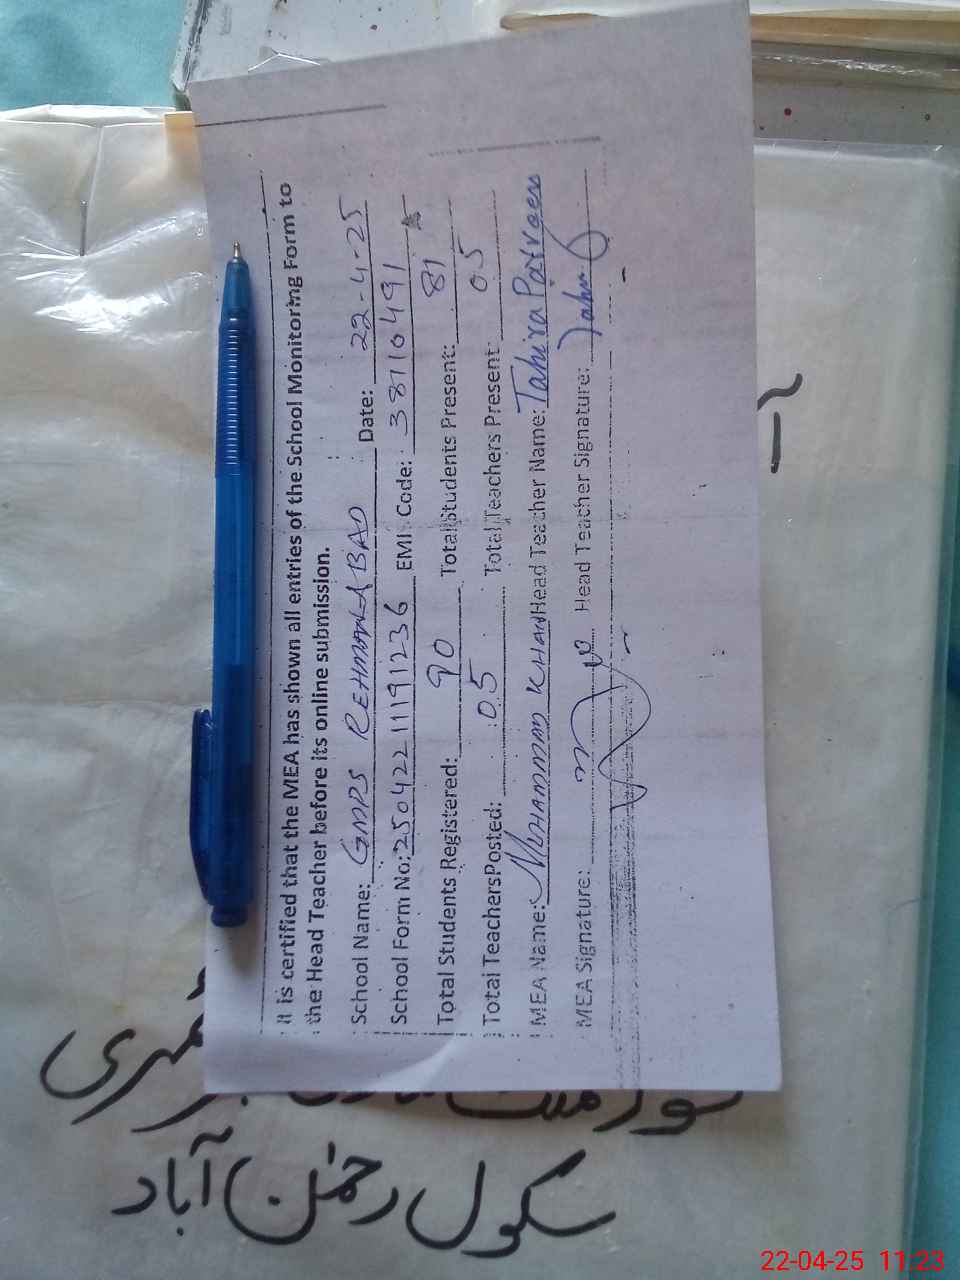 It is certified that the MEA has shown all entries of the School Monitoring Form to
the Head Teacher before its online submission.
School Name: GMPS REHMANABAD Date: 22-4-25
School Form No: 25042211191236 EMIS Code: 38110491
Total Students Registered: 90 Total Students Present: 81
Total Teachers Posted: 05 Total Teachers Present: 05
MEA Name: MUHAMMAD KHAN Head Teacher Name: Tahira Parveen
MEA Signature: Head Teacher Signature: Tahira
سکول رحمٰن آباد
22-04-25 11:23